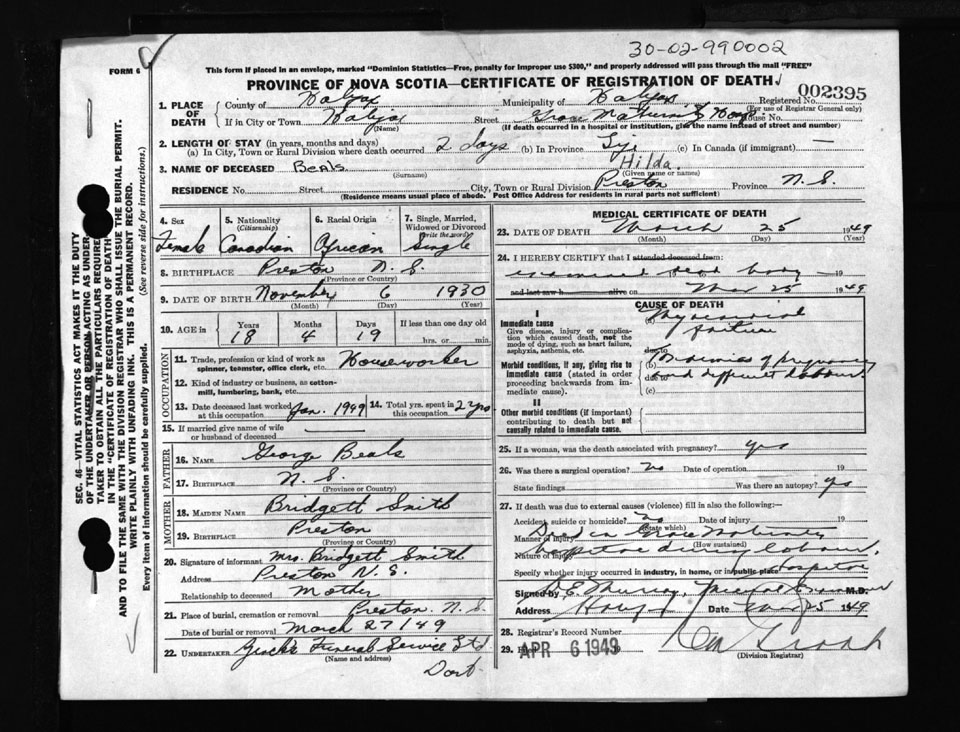 30-02-990002
FORM 6
This form if placed in an envelope, marked "Dominion Statistics—Free, penalty for improper use $300," and properly addressed will pass through the mail "FREE"
PROVINCE OF NOVA SCOTIA—CERTIFICATE OF REGISTRATION OF DEATH
002395
1. PLACE OF DEATH County of Halifax Municipality of Halifax Registered No.
(For use of Registrar General only)
If in City or Town Halifax Street Grace Maternity Hosp House No.
(Name) (If death occurred in a hospital or institution, give the name instead of street and number)
2. LENGTH OF STAY (in years, months and days)
(a) In City, Town or Rural Division where death occurred 2 days (b) In Province (c) In Canada (if immigrant) —
3. NAME OF DECEASED Beals Hilda
(Surname) (Given name or names)
RESIDENCE No. Street City, Town or Rural Division Preston Province N.S.
(Residence means usual place of abode. Post Office Address for residents in rural parts not sufficient)
4. Sex Female
5. Nationality (Citizenship) Canadian
6. Racial Origin African
7. Single, Married, Widowed or Divorced (Write the word) Single
8. BIRTHPLACE Preston N.S.
(Province or Country)
9. DATE OF BIRTH November 6 1930
(Month) (Day) (Year)
10. AGE in Years Months Days If less than one day old
18 4 19 hrs. or min.
OCCUPATION
11. Trade, profession or kind of work as spinner, teamster, office clerk, etc. Houseworker
12. Kind of industry or business, as cotton-mill, lumbering, bank, etc.
13. Date deceased last worked at this occupation Jan. 1949 14. Total yrs. spent in this occupation 2 yrs
15. If married give name of wife or husband of deceased
FATHER
16. NAME George Beals
17. BIRTHPLACE N.S.
(Province or Country)
MOTHER
18. MAIDEN NAME Bridgett Smith
19. BIRTHPLACE Preston
(Province or Country)
20. Signature of informant Mrs. Bridgett Smith
Address Preston N.S.
Relationship to deceased Mother
21. Place of burial, cremation or removal Preston N.S.
Date of burial or removal March 27/49
22. UNDERTAKER Funeral Service Ltd.
(Name and address)
Dart.
MEDICAL CERTIFICATE OF DEATH
23. DATE OF DEATH March 25 1949
(Month) (Day) (Year)
24. I HEREBY CERTIFY that I attended deceased from:
examined dead body 19
and last saw h alive on Mar 25 1949
CAUSE OF DEATH
I
Immediate cause (a) Myocardial
Give disease, injury or complication which caused death, not the mode of dying, such as heart failure, asphyxia, asthenia, etc.
due to
Morbid conditions, if any, giving rise to immediate cause (stated in order proceeding backwards from immediate cause). (b) Toxaemias of pregnancy
due to and difficult labour.
(c)
II
Other morbid conditions (if important) contributing to death but not causally related to immediate cause.
25. If a woman, was the death associated with pregnancy? yes
26. Was there a surgical operation? no Date of operation 19
State findings Was there an autopsy? yes
27. If death was due to external causes (violence) fill in also the following:—
Accident, suicide or homicide? no Date of injury 19
(State which)
Manner of injury Died in Grace Maternity
(How sustained)
Nature of injury hospital during labour.
Specify whether injury occurred in industry, in home, or in public place hospital
Signed by D.E. Murray, M.D.
Address Date Mar 25 1949
28. Registrar's Record Number
29. Filed APR 6 1949 19
(Division Registrar)
SEC. 46—VITAL STATISTICS ACT MAKES IT THE DUTY
OF THE UNDERTAKER OR PERSON ACTING AS UNDER-
TAKER TO OBTAIN ALL THE PARTICULARS REQUIRED
IN THE "CERTIFICATE OF REGISTRATION OF DEATH"
AND TO FILE THE SAME WITH THE DIVISION REGISTRAR WHO SHALL ISSUE THE BURIAL PERMIT.
WRITE PLAINLY WITH UNFADING INK. THIS IS A PERMANENT RECORD.
Every item of information should be carefully supplied. (See reverse side for instructions.)